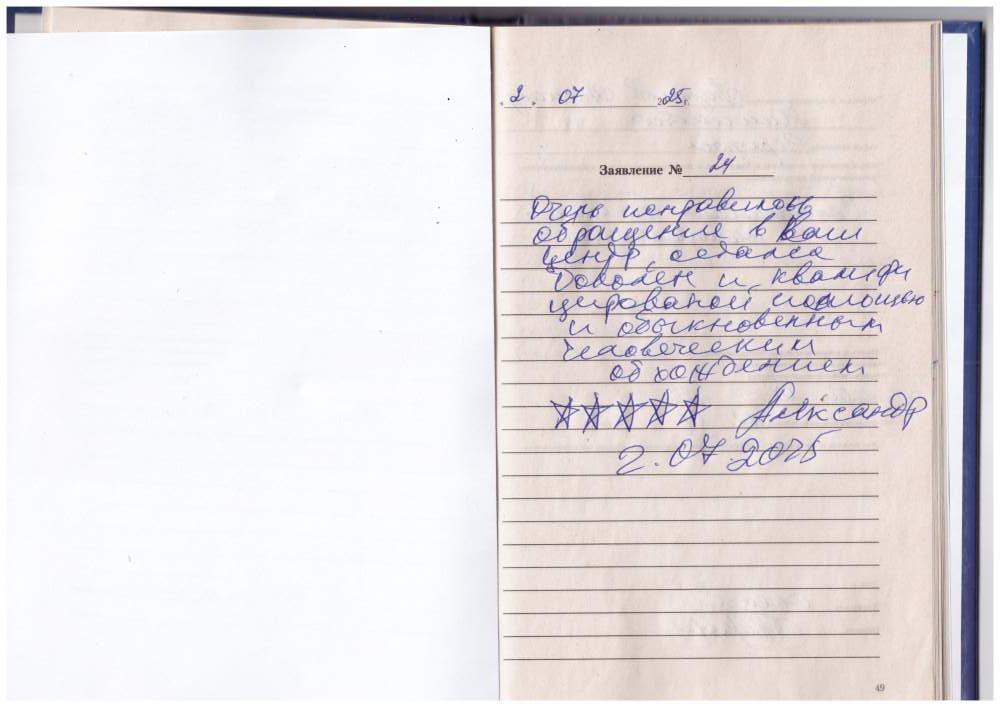 2. 07 2025г.
Заявление № 24
Очень понравилось
обращение в Ваш
центр, остался
доволен и квалифи
цированой помощью
и обыкновенным
человеческим
обхождением
Александр
2.07.2025
49